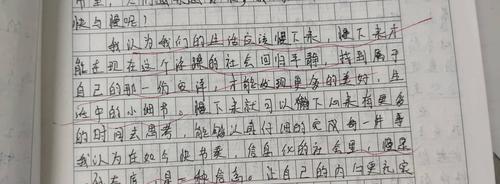 快与慢呢！
我认为我们的生活应该慢下来，慢下来才
能在现在这个浮躁的社会回归平静，找到属于
自己的那一份安详，才能发现更多的美好，生
活中的小细节。慢下来就可以慢下心来有更多
的时间去思考，能够认真仔细的完成每一件事
我认为在如今快节奏，信息化的社会里，慢
的态度，是一种信念。让自己的内心更充实